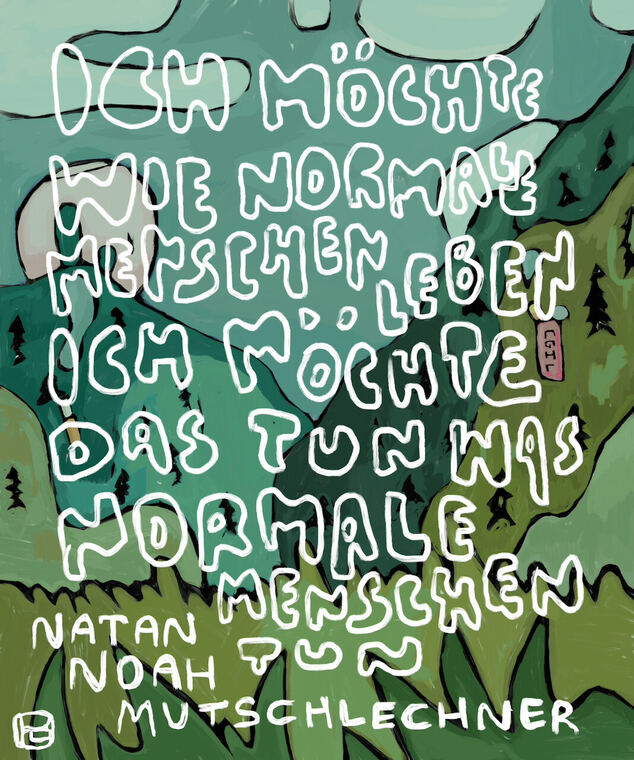 ICH MÖCHTE
WIE NORMALE
MENSCHEN LEBEN
ICH MÖCHTE
DAS TUN WAS
NORMALE
MENSCHEN
TUN
NATAN
NOAH
MUTSCHLECHNER